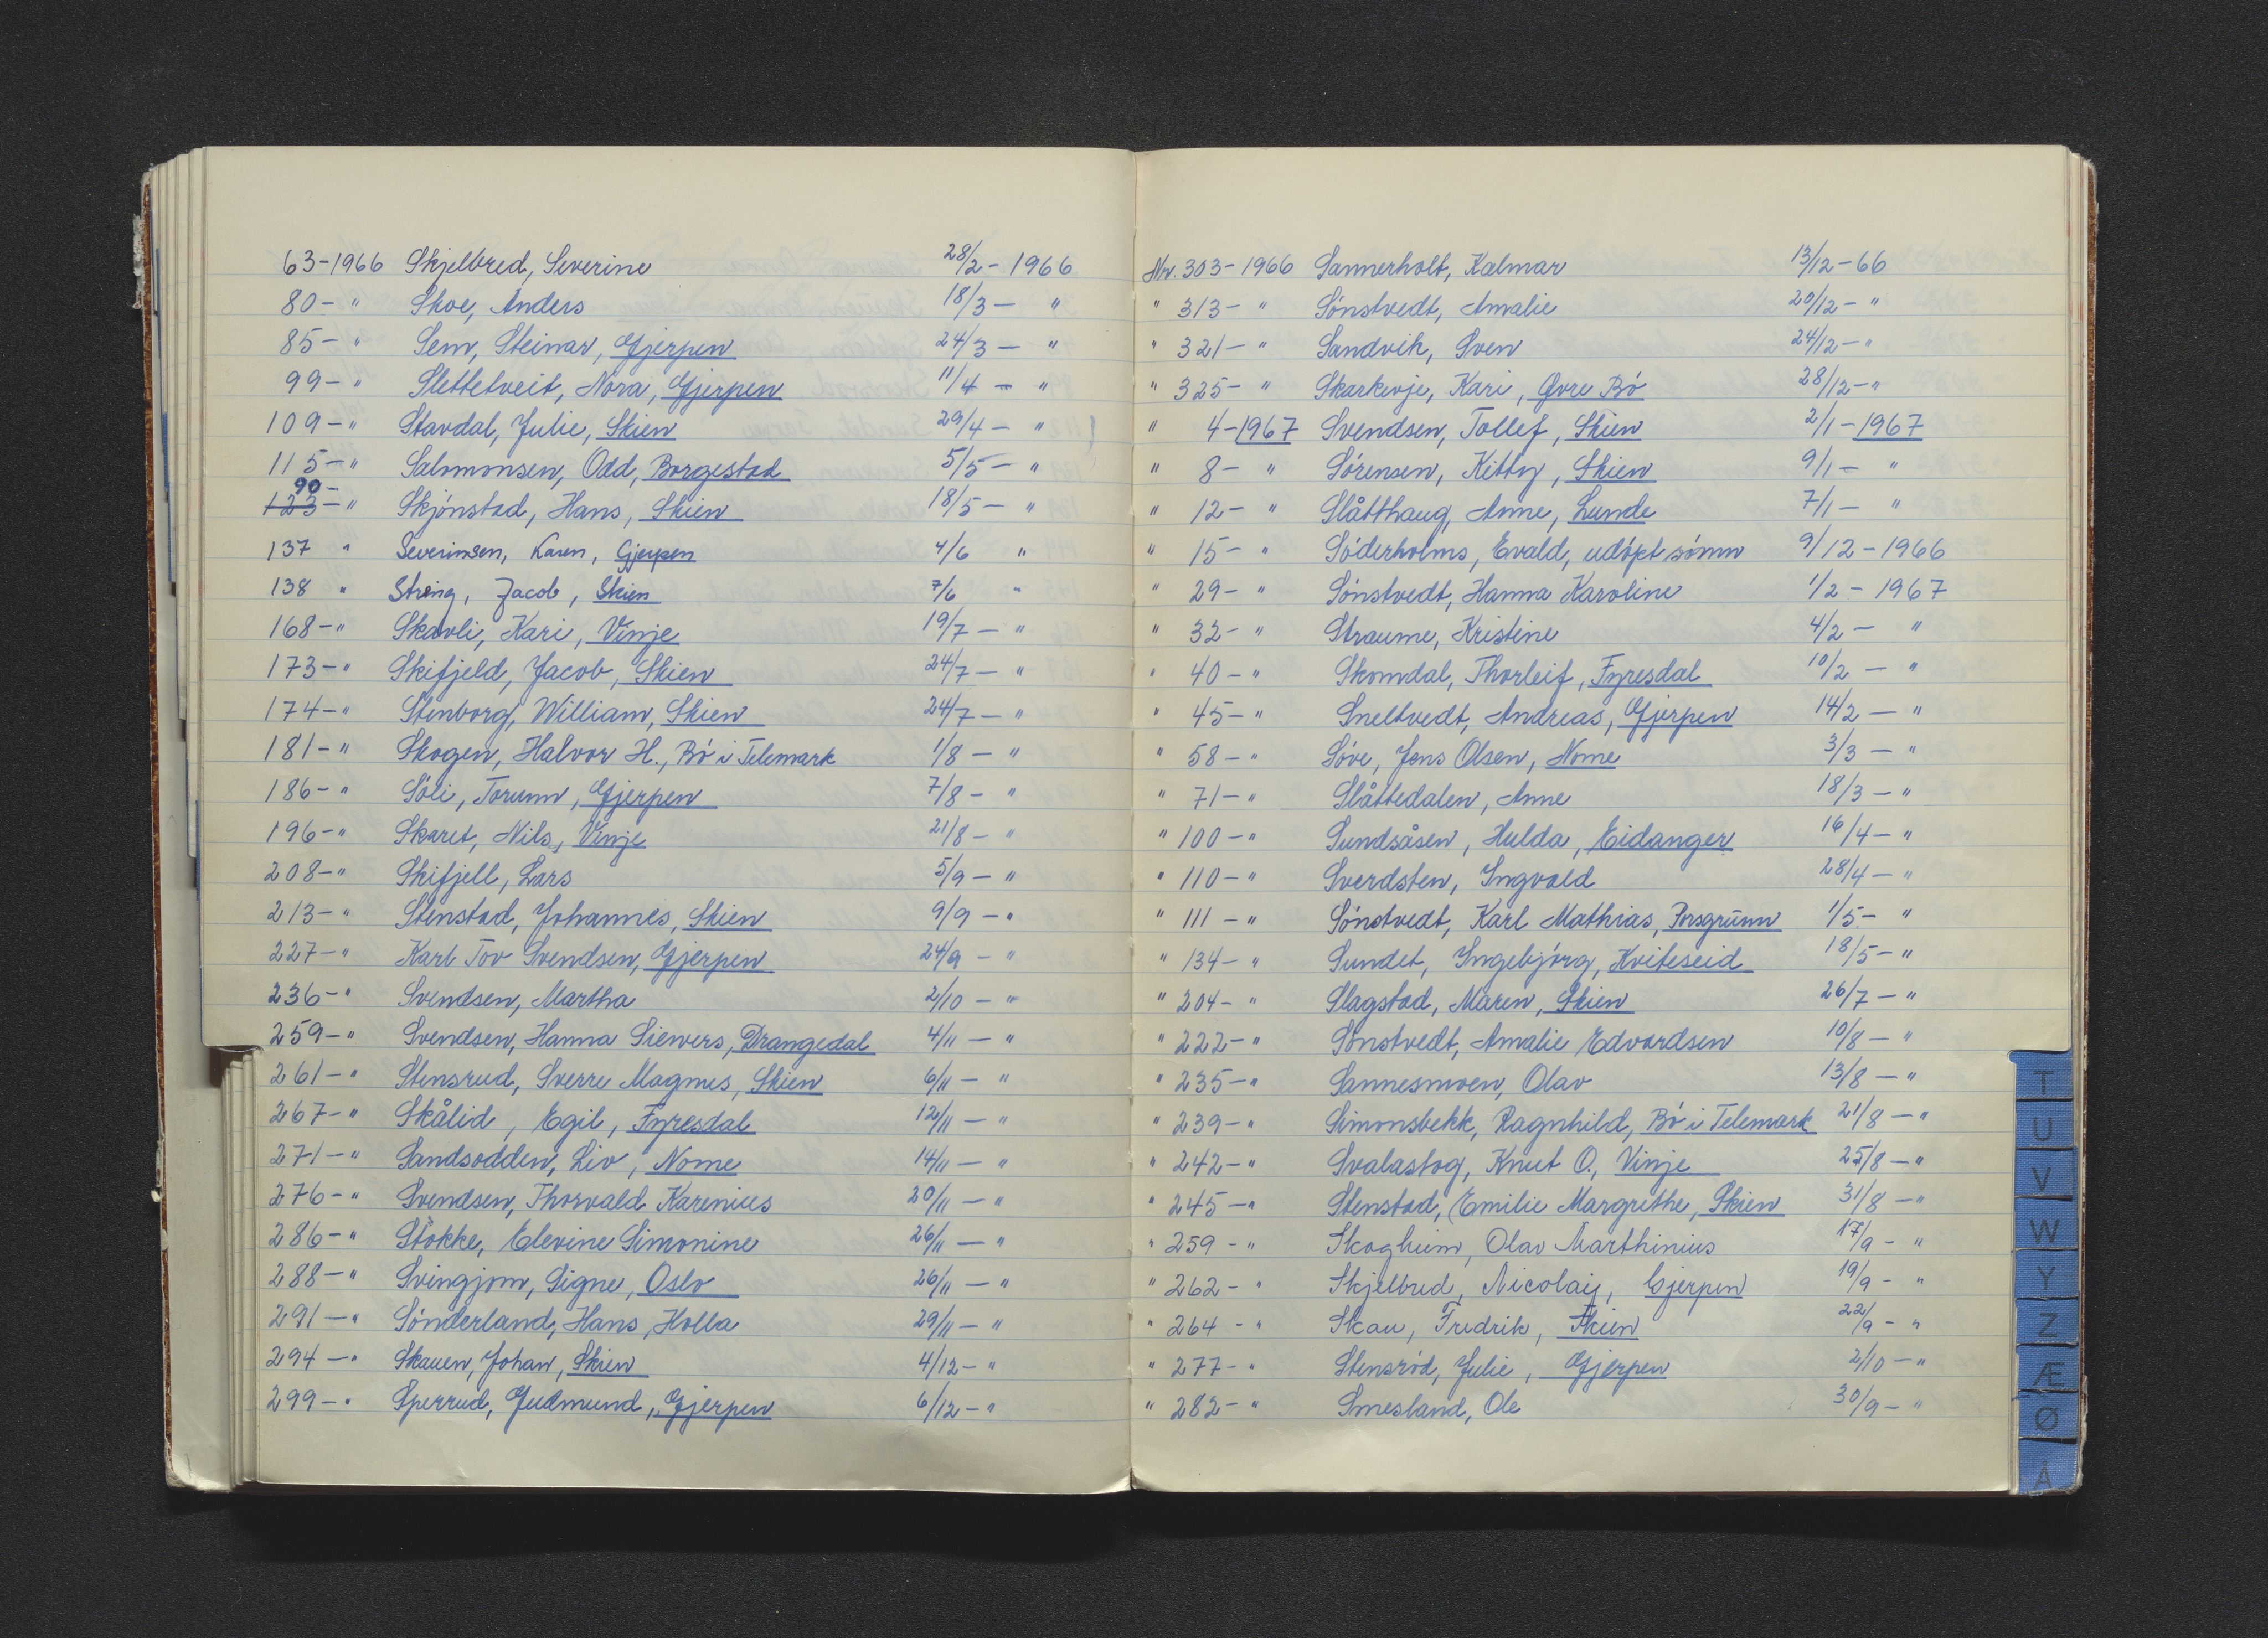 63-1966 Skjelbred, Severine 28/2 - 1966
80- " Skoe, Anders 18/3 - "
85- " Sem, Steinar, Gjerpen 24/3 - "
99- " Slettetveit, Nora, Gjerpen 11/4 - "
109- " Stavdal, Julie, Skien 29/4 - "
115- " Salomonsen, Odd, Borgestad 5/5 - "
90-
123- " Skjönstad, Hans, Skien 18/5 - "
137 " Severinsen, Karen, Gjerpen 4/6 "
138 " Streng, Jacob, Skien 7/6 "
168- " Skavli, Kari, Vinje 19/7 - "
173- " Skifjeld, Jacob, Skien 24/7 - "
174- " Stenborg, William, Skien 24/7 - "
181- " Skogen, Halvor H., Bö i Telemark 1/8 - "
186- " Söli, Torunn, Gjerpen 7/8 - "
196- " Skaret, Nils, Vinje 21/8 - "
208- " Skifjell, Lars 5/9 - "
213- " Stenstad, Johannes, Skien 9/9 - "
227- " Karl Tov Svendsen, Gjerpen 24/9 - "
236- " Svendsen, Martha 2/10 - "
259- " Svendsen, Hanna Siewers, Drangedal 4/11 - "
261- " Stensrud, Sverre Magnus, Skien 6/11 - "
267- " Skålid, Egil, Fyresdal 12/11 - "
271- " Sandsodden, Liv, Nome 14/11 - "
276- " Svendsen, Thorvald Karenius 20/11 - "
286- " Stokke, Elevine Simonine 26/11 - "
288- " Svingjom, Signe, Oslo 26/11 - "
291- " Sönderland, Hans, Holla 29/11 - "
294- " Skauen, Johan, Skien 4/12 - "
299- " Sperrud, Gudmund, Gjerpen 6/12 - "
Nr. 303-1966 Sannerholt, Kalmar 13/12-66
" 313- " Sönstvedt, Amalie 20/12 - "
" 321- " Sandvik, Sven 24/12 - "
" 325- " Skarkevje, Kari, Øvre Bö 28/12 - "
" 4-1967 Svendsen, Tollef, Skien 2/1 - 1967
" 8- " Sörensen, Kitty, Skien 9/1 - "
" 12- " Slåtthaug, Anne, Lunde 7/1 - "
" 15- " Söderholms, Evald, udöpt sönn 9/12 - 1966
" 29- " Sönstvedt, Hanna Karoline 1/2 - 1967
" 32- " Straume, Kristine 4/2 - "
" 40- " Skomdal, Thorleif, Fyresdal 10/2 - "
" 45- " Sneltvedt, Andreas, Gjerpen 14/2 - "
" 58- " Söve, Jens Olsen, Nome 3/3 - "
" 71- " Slåttedalen, Anne 18/3 - "
" 100- " Sundsåsen, Hulda, Eidanger 16/4 - "
" 110- " Sverdsten, Ingvald 28/4 - "
" 111- " Sönstvedt, Karl Mathias, Porsgrunn 1/5 - "
" 134- " Sundet, Ingebjörg, Kviteseid 18/5 - "
" 204- " Slagstad, Maren, Skien 26/7 - "
" 222- " Sönstvedt, Amalie Edvardsen 10/8 - "
" 235- " Sannesmoen, Olav 13/8 - "
" 239- " Simonsbekk, Ragnhild, Bö i Telemark 21/8 - "
" 242- " Svalastog, Knut O., Vinje 25/8 - "
" 245- " Stenstad, Emilie Margrethe, Skien 31/8 - "
" 259- " Skogheim, Olav Marthinius 17/9 - "
" 262- " Skjelbred, Nicolaij, Gjerpen 19/9 - "
" 264- " Skau, Fredrik, Skien 22/9 - "
" 277- " Stensröd, Julie, Gjerpen 2/10 - "
" 282- " Smesland, Ole 30/9 - "
T
U
V
W
Y
Z
Æ
Ø
Å